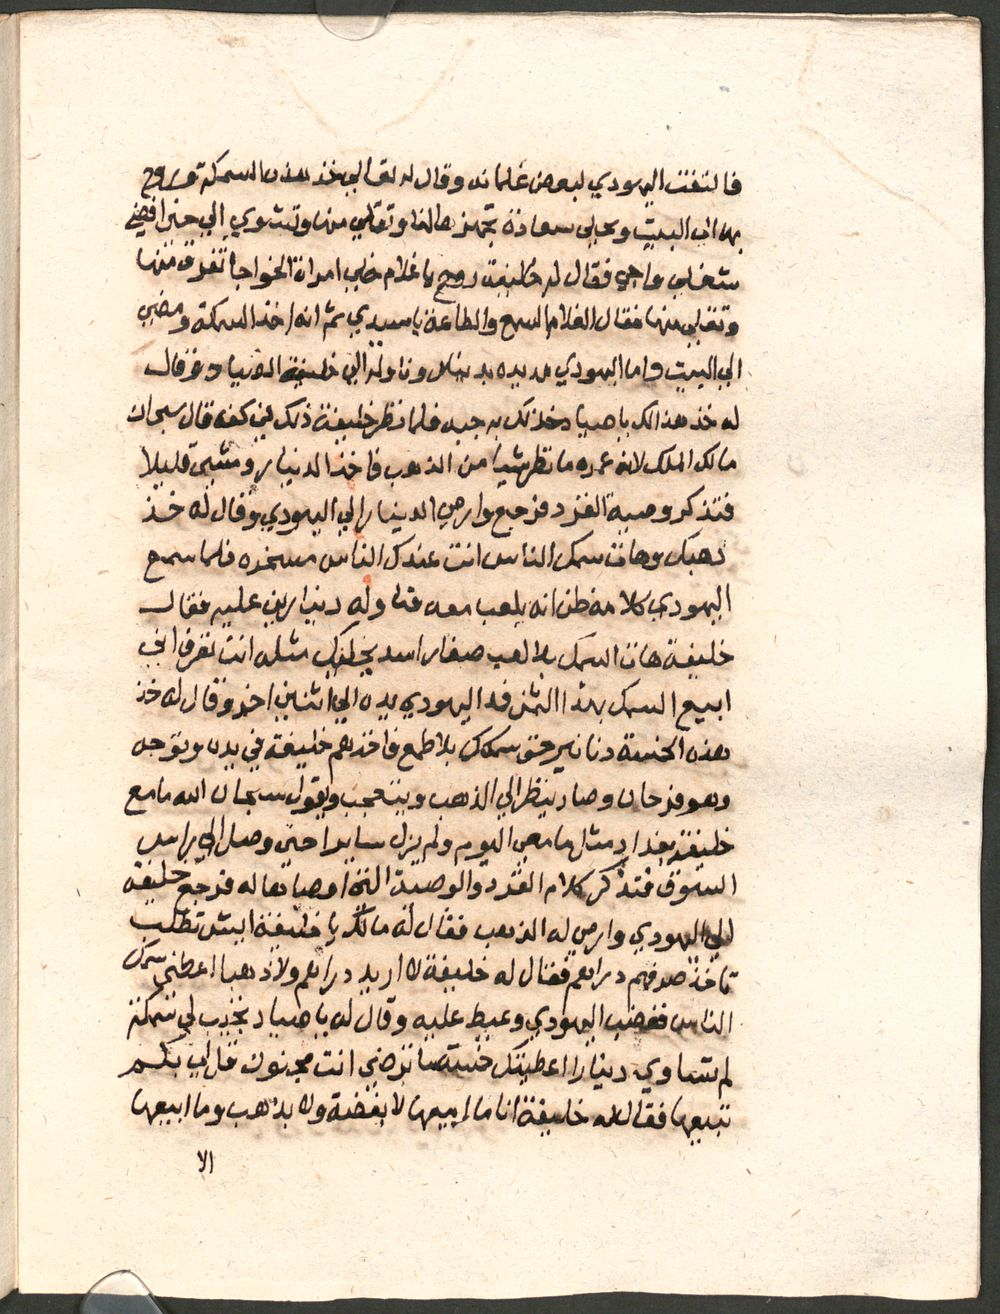 فالتفت اليهودي لبعض غلمانه وقال له تعالي خذ هذه السمكة وروح
بها الي البيت وخلي سعادة تجهز حالها وتقلي منها وتشوي الي حين افضي
شغلي واجي فقال له خليفة روح يا غلام خلي امراة الخواجا تغرق منها
وتقلي منها فقال الغلام السمع والطاعة يا سيدي ثم انه اخذ السمكة ومضي
الي البيت واما اليهودي مد يده بدينار وناوله الي خليفة الصياد وقال
له خذ هذا لك يا صياد خذ لك به جبه فلما نظر خليفة ذلك في كفه قال سبحان
مالك الملك لانه عمره ما نظر شيا من الذهب فاخذ الدينار ومشي قليلا
فتذكر وصية القرد فرجع وارمي الدينار الي اليهودي وقال له خذ
دهبك وهات سمك الناس انت عندك الناس مسخره فلما سمع
اليهودي كلامه ظن انه يلعب معه فناوله دينارين عليه فقال
خليفة هات السمك بلا لعب صغار اسد يخطفك مثله انت تعرف اني
ابيع السمك بهذا الثمن فمد اليهودي يده الي اثنين اخر وقال له خذ
هذه الخمسة دنانير حق سمكك بلا طمع فاخذهم خليفة في يده وتوجه
وهو فرحان وصار ينظر الي الذهب ويتعجب ويقول سبحان الله ما مع
خليفة بغداد مثل ما معي اليوم ولم يزل سايرا حتي وصل الي راس
السوق فتذكر كلام القرد والوصية التي اوصاها له فرجع خليفة
الي اليهودي وارمي له الذهب فقال له مالك يا خليفة ايش تطلب
تاخذ صرفهم دراهم فقال له خليفة لا اريد دراهم ولا ذهبا اعطني سمك
الناس فغضب اليهودي وعيط عليه وقال له يا صياد تجيب لي سمكة
لم تساوي دينارا اعطيتك خمسة ما ترضي انت مجنون قل لي بكم
تبيعها فقال له خليفة انا ما ابيعها لا بفضة ولا بذهب وما ابيعها
الا